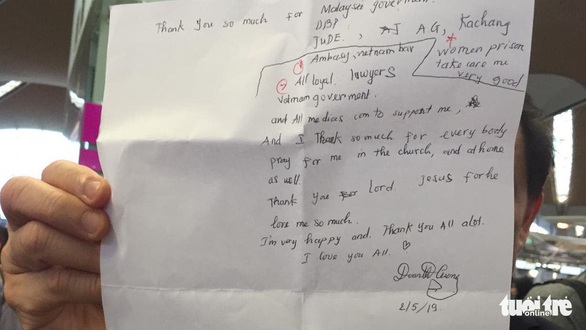 Thank you so much for Malaysia goverment.
DBP
JUDE., AG, Kachang
① Ambassy, vetnam bar
② All loyal lawyers
women prison
take care me
very good
vetnam goverment.
and All medias com to support me,
And I Thank so much for every body
pray for me in the church, and at home
as well.
Thank you Lord Jesus for he
love me so much.
I'm very happy and. Thank you All alot.
I love you All. ♡
2/5/19.
tuổi trẻ
online